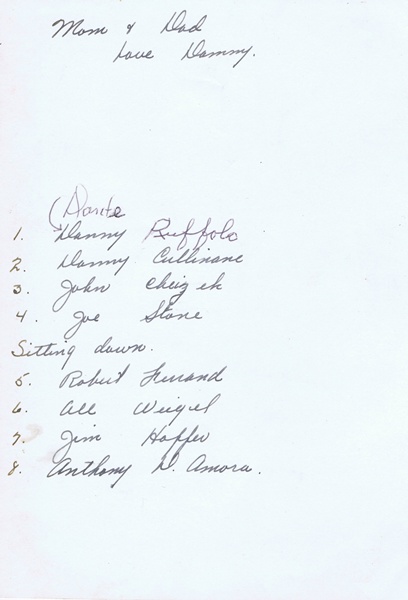 Mom & Dad
Love Dommy.
(Dante
1. Danny Ruffolo
2. Dommy Cullinane
3. John Cheizek
4. Joe Stone
Sitting down.
5. Robert
6. All Weigel
7. Jim Hoffer
8. Anthony D. Amora.